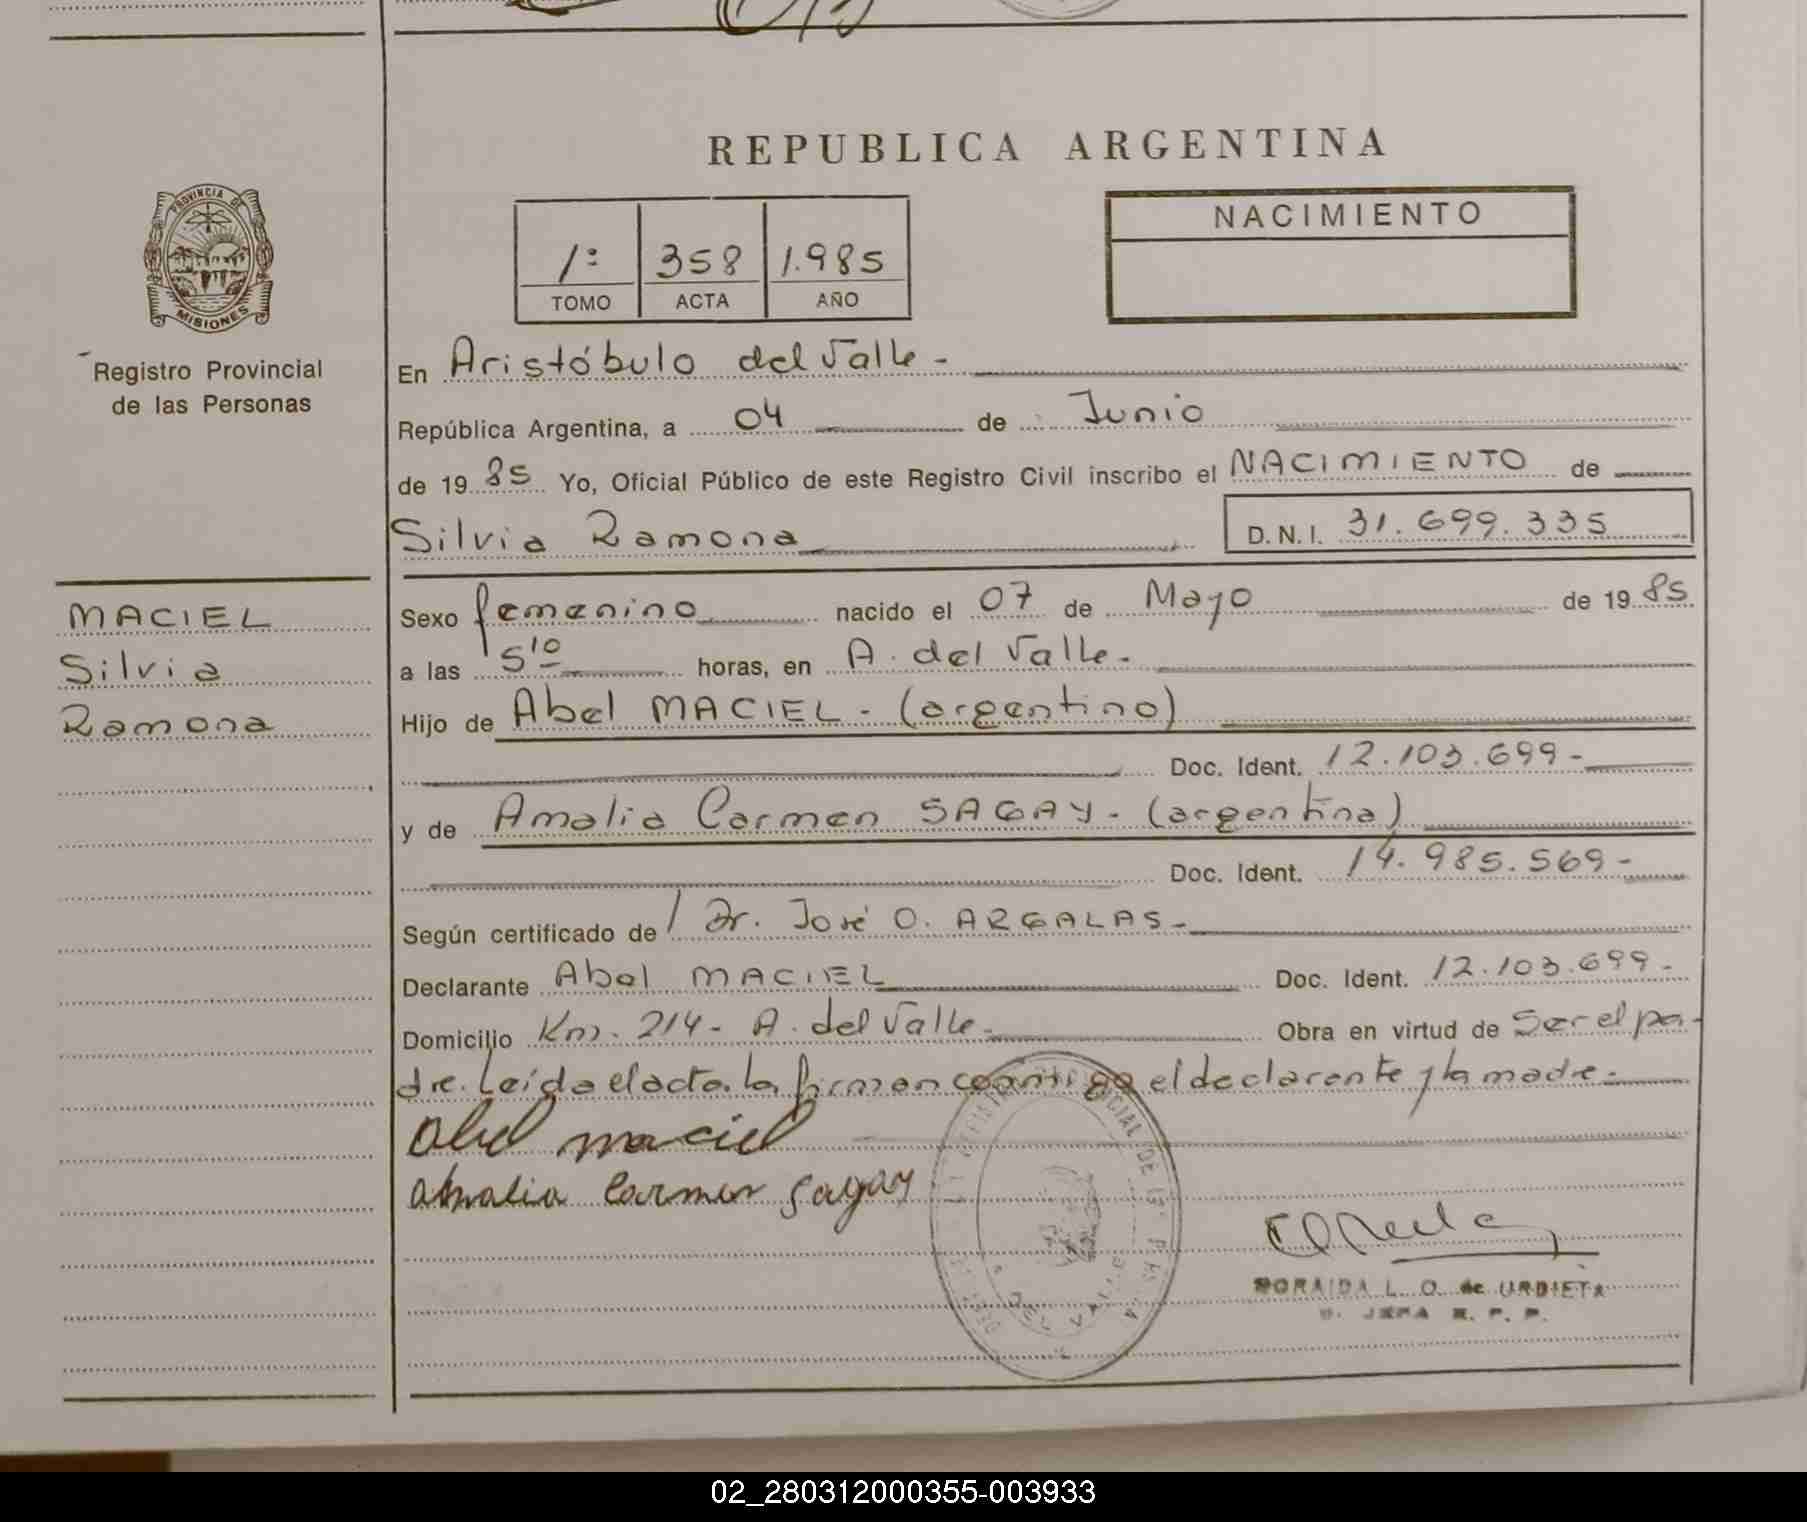 REPUBLICA ARGENTINA
PROVINCIA DE
MISIONES
Registro Provincial
de las Personas
1º 358 1.985
TOMO ACTA AÑO
NACIMIENTO
En Aristóbulo del Valle -
República Argentina, a 04 de Junio
de 1985 Yo, Oficial Público de este Registro Civil inscribo el NACIMIENTO de
Silvia Ramona D.N.I. 31.699.335
MACIEL
Silvia
Ramona
Sexo femenino nacido el 07 de Mayo de 1985
a las 5 10 horas, en A. del Valle.
Hijo de Abel MACIEL - (argentino)
Doc. Ident. 12.103.699-
y de Amalia Carmen SAGAY - (argentina)
Doc. Ident. 14.985.569-
Según certificado de Dr. José O. ARGALAS-
Declarante Abel MACIEL Doc. Ident. 12.103.699-
Domicilio Km. 214- A. del Valle- Obra en virtud de Ser el pa-
dre. Leída el acta. la firman conmigo el declarante y la madre.
Abel maciel
Amalia Carmen Sagay
DEL VALLE
L. O. de URDIETA
JEFA R. P. P.
02_280312000355-003933